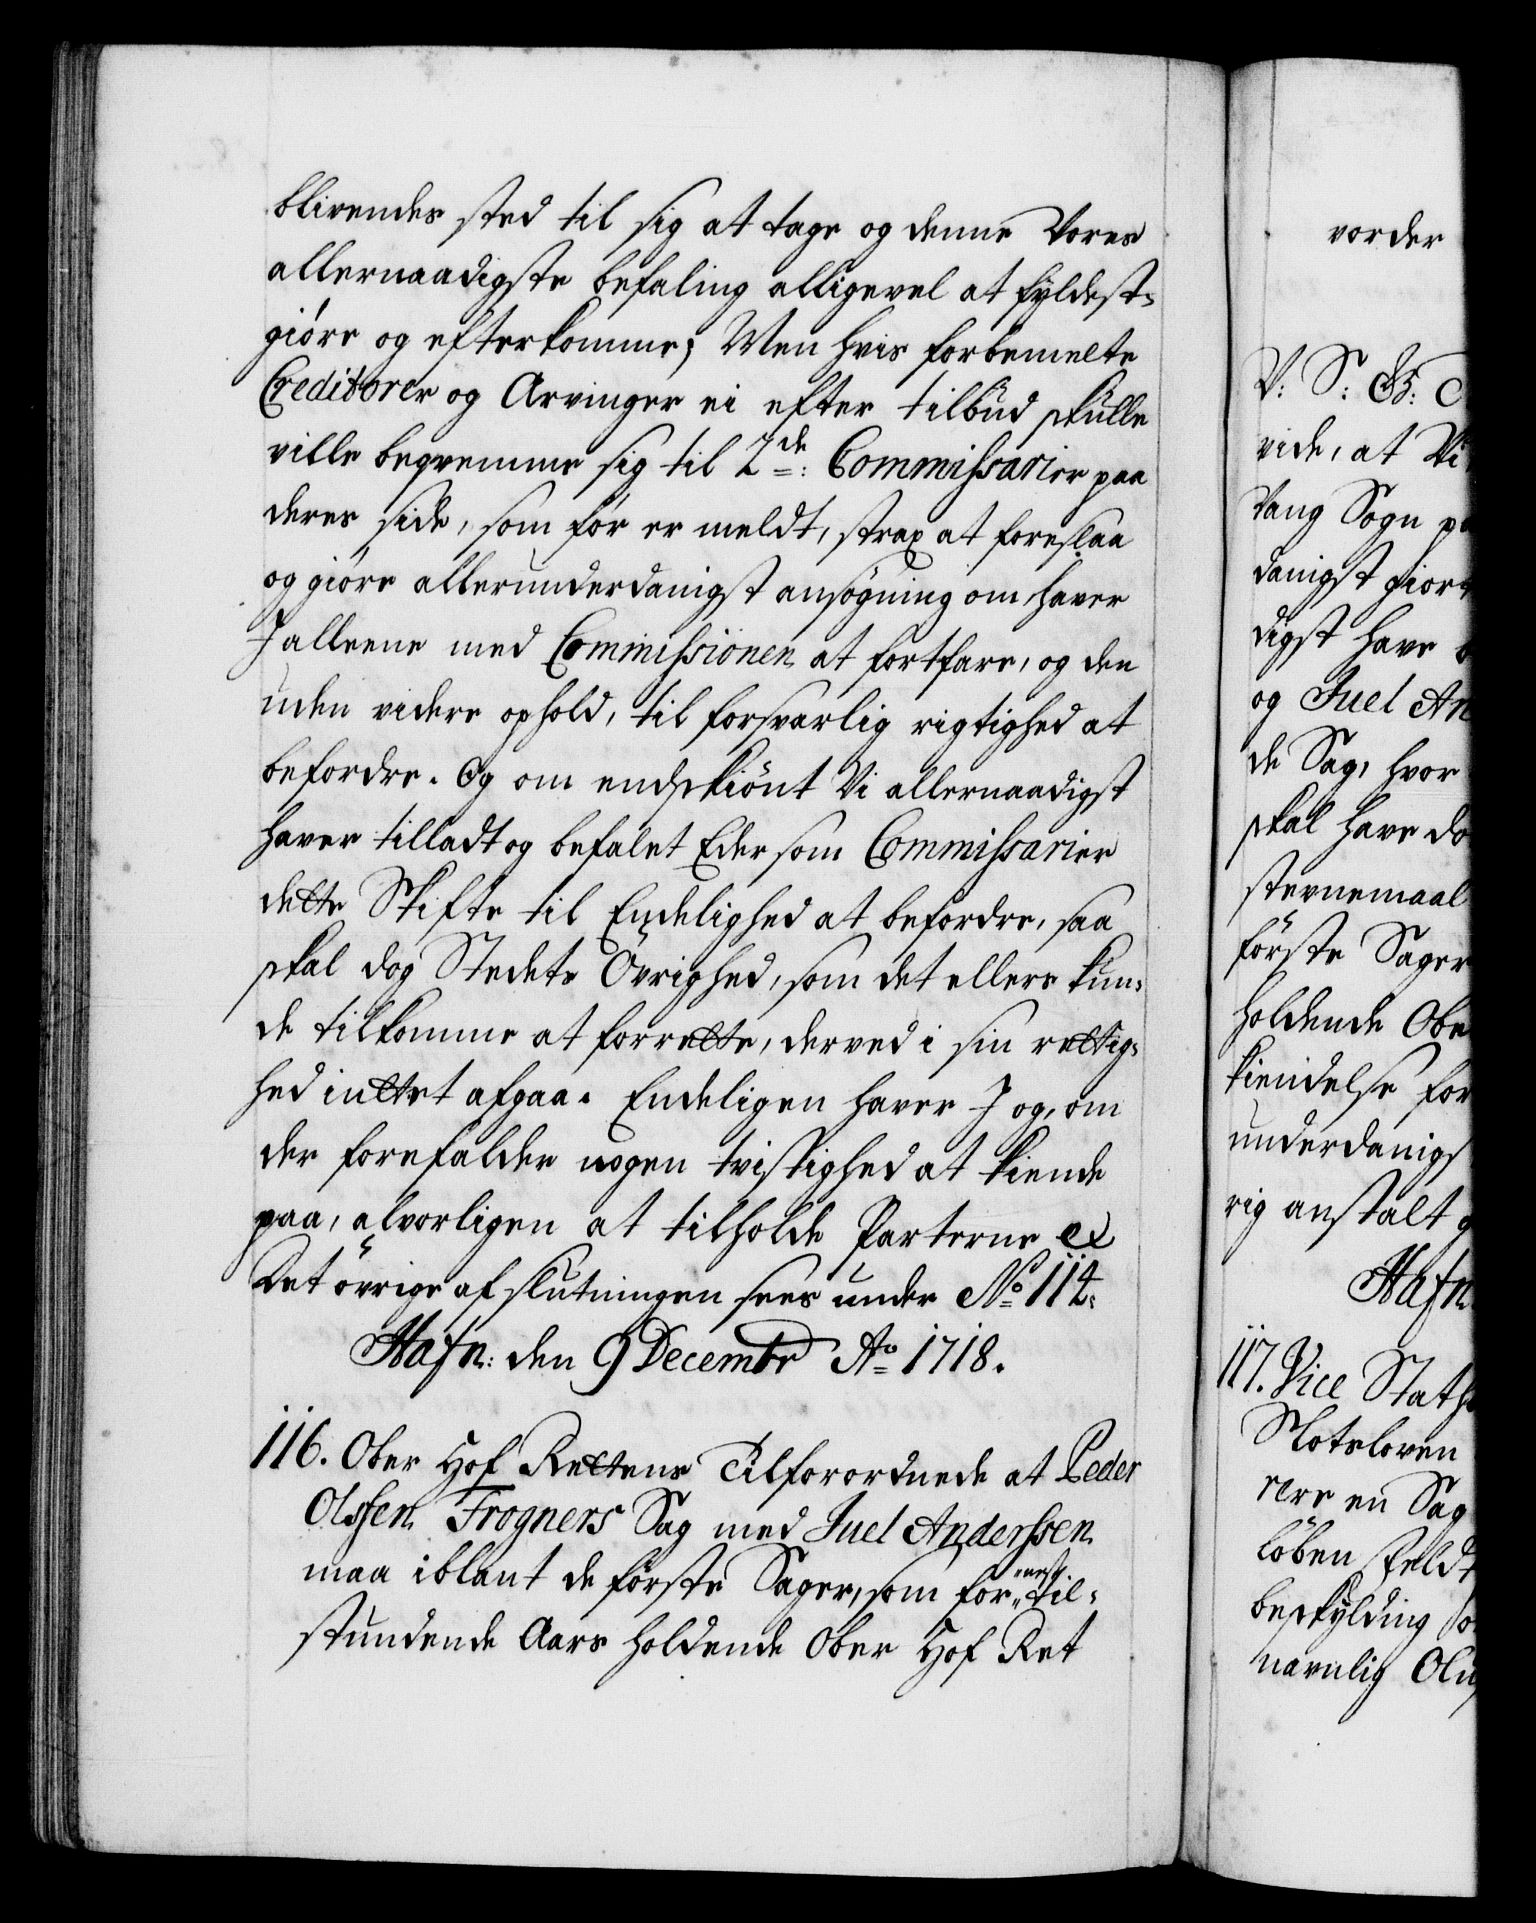 blivendes sted til sig at tage og denne Vores
allernaadigste befaling alligevel at fyldest=
giöre og efterkomme; Men hvis forbemelte
Creditorer og Arvinger ei efter tilbud skulle
ville beqvemme sig til 2de: Commissarier paa
deres side, som för er meldt, strax at foreslaa
og giöre allerunderdanigst ansögning om, haver
I alleene med Commissionen at fortfare, og den
uden videre ophold, til forsvarlig rigtighed at
befordre. Og om endskiönt Vi allernaadigst
haver tilladt og befalet Eder som Commissarier
dette Skifte til Endelighed at befordre, saa
skal dog Stedets Övrighed, som det ellers kun=
de tilkomme at forrette, derved i sin rettig=
hed intet afgaa. Endeligen haver I og, om
der forefalder nogen tvistighed at kiende
paa, alvorligen at tilholde Parterne &
Det övrige af slutningen sees under No 114.
Hafn: den 9 Decembr Ao 1718.
116. Ober Hof Rettens Tilforordnede at Peder
Olssen Frogners Sag med Juel Anderssen
maa iblant de förste Sager, som for næst til=
stundende Aars holdende Ober Hof Ret
vorder
V: S: G: C
vide, at Vi
Vang Sogn p
danigst giort
digst have b
og Juel An
de Sag, hvor
skal have do
stevnemaal
förste Sager
holdende Obe
kiendelse for
underdanigs
rig anstalt g
Hafn
117. Vice Stath
Slotsloven
være en Sag
löben Feldt
beskylding so
navnlig Olu